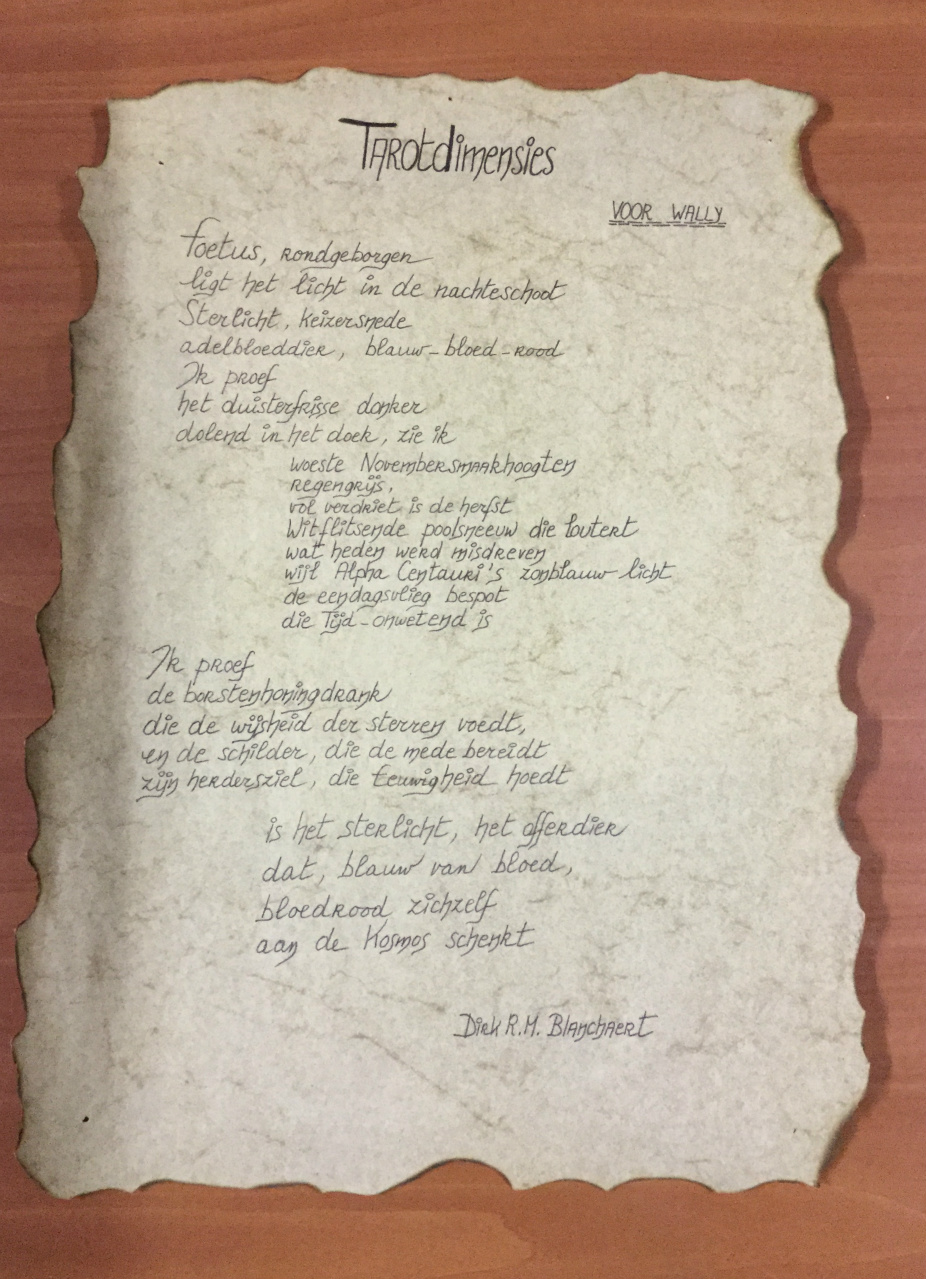 Tarotdimensies
VOOR WALLY
foetus, rondgeborgen
ligt het licht in de nachteschoot
Sterlicht, keizersnede
adelbloeddier, blauw-bloed-rood
Ik proef
het duisterfrisse donker
dolend in het doek, zie ik
woeste Novembersmaakhoogten
regengrijs,
vol verdriet is de herfst
Witflitsende poolsneeuw die loutert
wat heden werd misdreven
wijl Alpha Centauri's zonblauw licht
de eendagsvlieg bespot
die Tijd-onwetend is
Ik proef
de borstenhoningdrank
die de wijsheid der sterren voedt,
en de schilder, die de mede bereidt
zijn herdersziel, die Eeuwigheid hoedt
is het sterlicht, het offerdier
dat, blauw van bloed,
bloedrood zichzelf
aan de Kosmos schenkt
Dirk R.M. Blanchaert